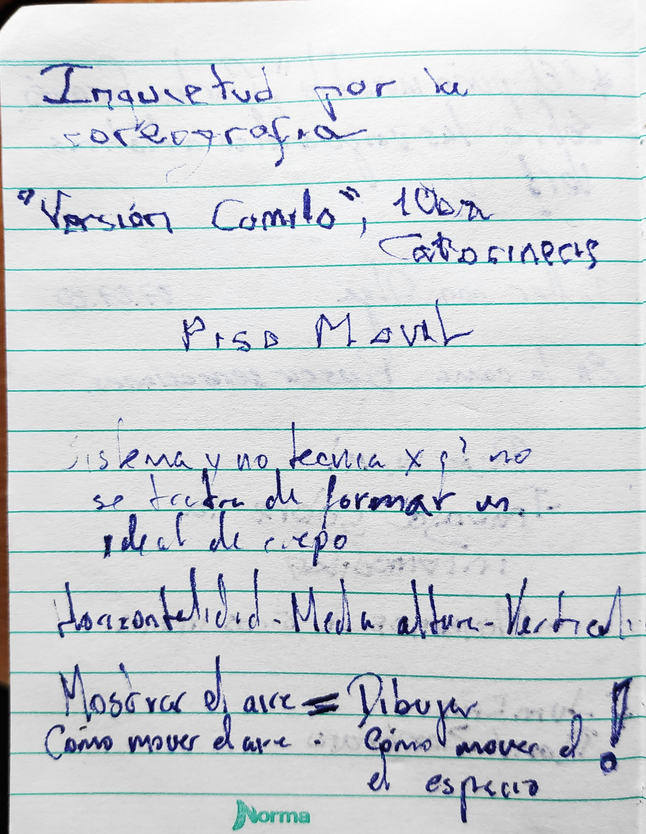 Inquietud por la
coreografía
"Versión Camilo",
Piso Movil
Sistema y no tecnica x q' no
se trata de formar un
ideal de cuerpo
Horizontalidad - Media altura - Vertical
Mostrar el aire = Dibujar !
Cómo mover el aire - Cómo mover el
el espacio
Norma